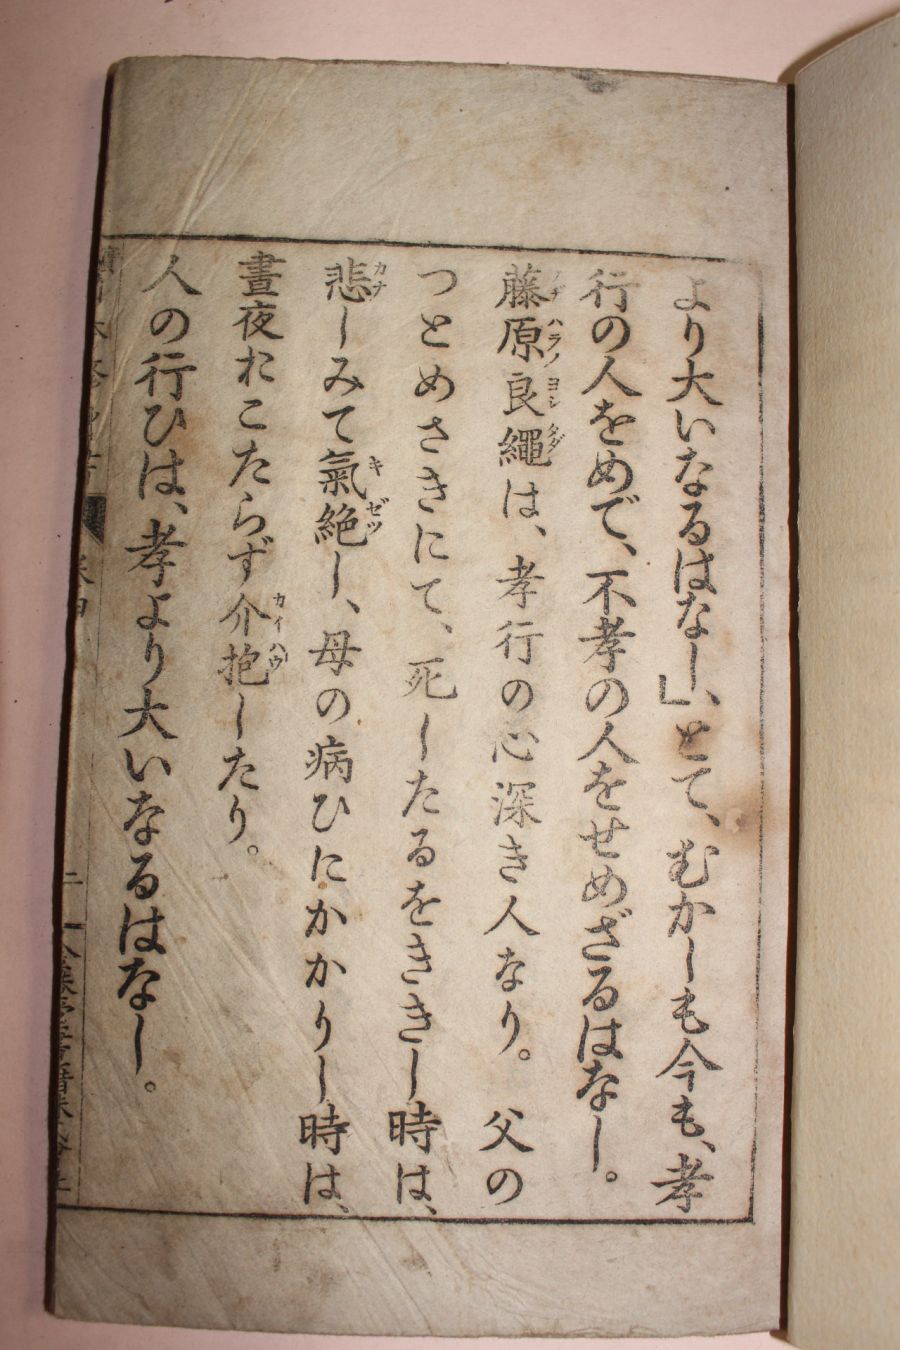 より大いなるはなし」、とて、むかしも今も、孝
行の人をめで、不孝の人をせめざるはなし。
藤原良繩は、孝行の心深き人なり。父の
つとめさきにて、死したるをききし時は、
悲しみて氣絶し、母の病ひにかかりし時は、
晝夜おこたらず介抱したり。
人の行ひは、孝より大いなるはなし。